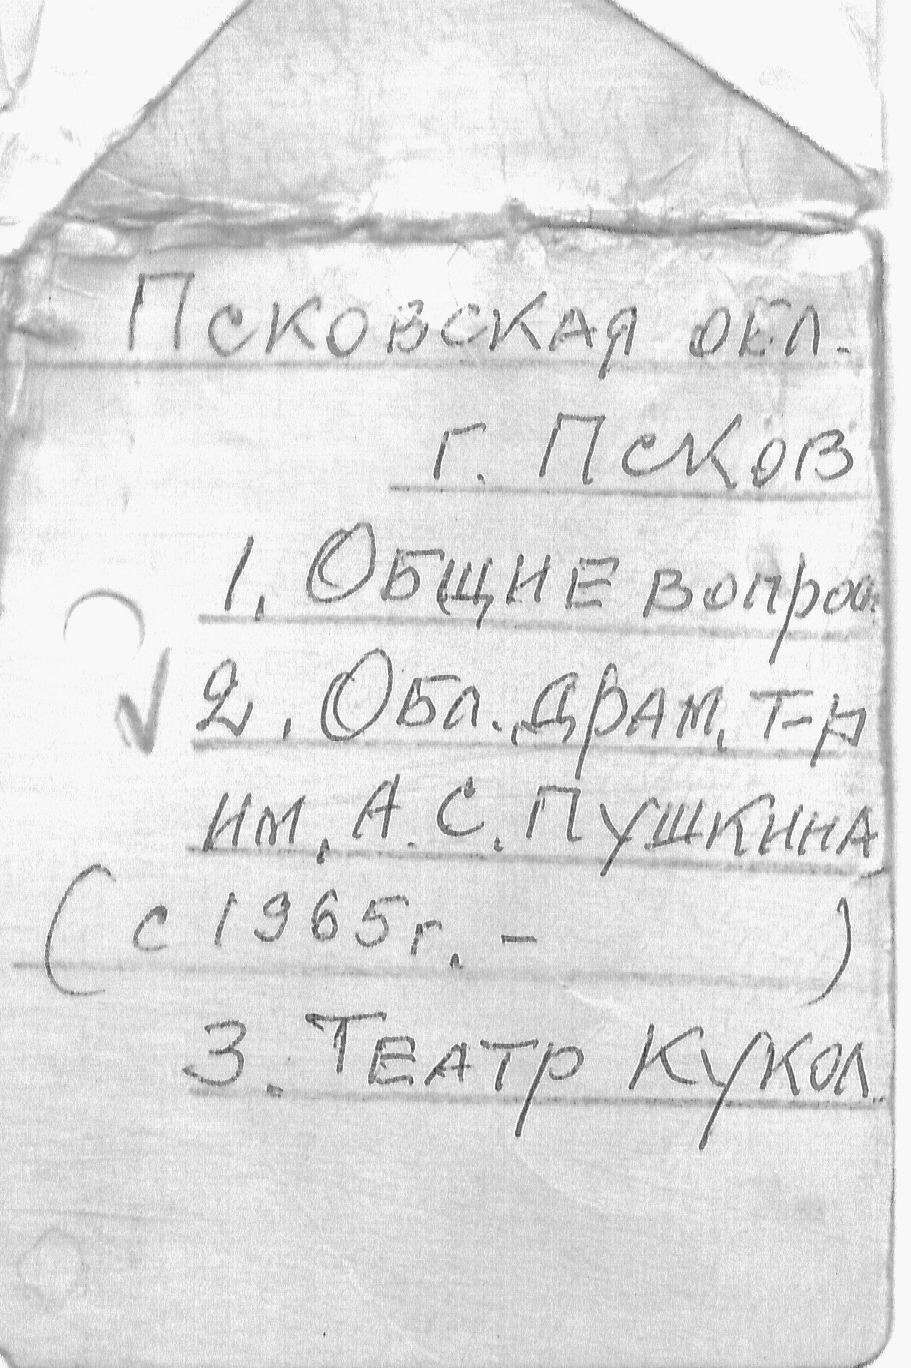 Псковская обл.
г. Псков
1. Общие вопросы
2. Обл. драм. т-р
им. А.С. Пушкина
(с 1965г. - )
3. Театр кукол.